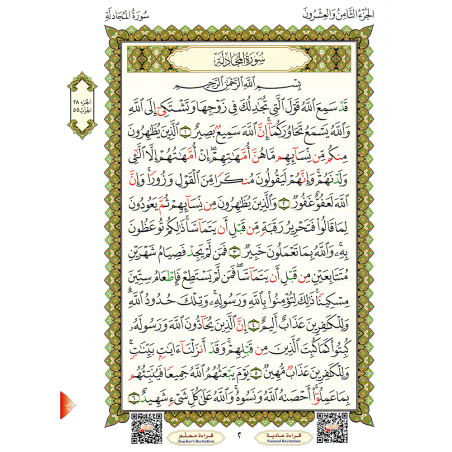 الجزء الثامن والعشرون
سورة المجادلة
سُورَةُ المُجَادلَةِ
بِسْمِ اللَّهِ الرَّحْمَٰنِ الرَّحِيمِ
قَدْ سَمِعَ اللَّهُ قَوْلَ الَّتِي تُجَٰدِلُكَ فِي زَوْجِهَا وَتَشْتَكِي إِلَى اللَّهِ
وَاللَّهُ يَسْمَعُ تَحَاوُرَكُمَا إِنَّ اللَّهَ سَمِيعٌ بَصِيرٌ ١ الَّذِينَ يُظَٰهِرُونَ
مِنكُم مِّن نِّسَائِهِم مَّا هُنَّ أُمَّهَٰتِهِمْ إِنْ أُمَّهَٰتُهُمْ إِلَّا الَّٰٓـِٔي
وَلَدْنَهُمْ وَإِنَّهُمْ لَيَقُولُونَ مُنكَرًا مِّنَ الْقَوْلِ وَزُورًا وَإِنَّ
اللَّهَ لَعَفُوٌّ غَفُورٌ ٢ وَالَّذِينَ يُظَٰهِرُونَ مِن نِّسَائِهِمْ ثُمَّ يَعُودُونَ
لِمَا قَالُوا فَتَحْرِيرُ رَقَبَةٍ مِّن قَبْلِ أَن يَتَمَاسَّا ذَٰلِكُمْ تُوعَظُونَ
بِهِ وَاللَّهُ بِمَا تَعْمَلُونَ خَبِيرٌ ٣ فَمَن لَّمْ يَجِدْ فَصِيَامُ شَهْرَيْنِ
مُتَتَابِعَيْنِ مِن قَبْلِ أَن يَتَمَاسَّا فَمَن لَّمْ يَسْتَطِعْ فَإِطْعَامُ سِتِّينَ
مِسْكِينًا ذَٰلِكَ لِتُؤْمِنُوا بِاللَّهِ وَرَسُولِهِ وَتِلْكَ حُدُودُ اللَّهِ
وَلِلْكَٰفِرِينَ عَذَابٌ أَلِيمٌ ٤ إِنَّ الَّذِينَ يُحَادُّونَ اللَّهَ وَرَسُولَهُ
كُبِتُوا كَمَا كُبِتَ الَّذِينَ مِن قَبْلِهِمْ وَقَدْ أَنزَلْنَا ءَايَٰتٍ بَيِّنَٰتٍ
وَلِلْكَٰفِرِينَ عَذَابٌ مُّهِينٌ ٥ يَوْمَ يَبْعَثُهُمُ اللَّهُ جَمِيعًا فَيُنَبِّئُهُم
بِمَا عَمِلُوا أَحْصَىٰهُ اللَّهُ وَنَسُوهُ وَاللَّهُ عَلَىٰ كُلِّ شَيْءٍ شَهِيدٌ ٦
الجزء ٢٨
الحزب ٥٥
قراءة معلّم
Teacher's Recitation
٢
قراءة عادية
Normal Recitation